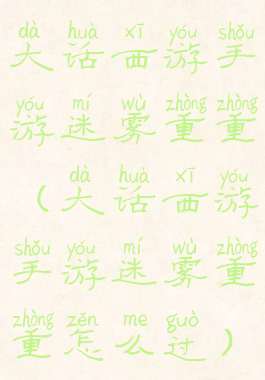 dà huà xī yóu shǒu
大话西游手
yóu mí wù zhòng zhòng
游迷雾重重
dà huà xī yóu
（大话西游
shǒu yóu mí wù zhòng
手游迷雾重
zhòng zěn me guò
重怎么过）